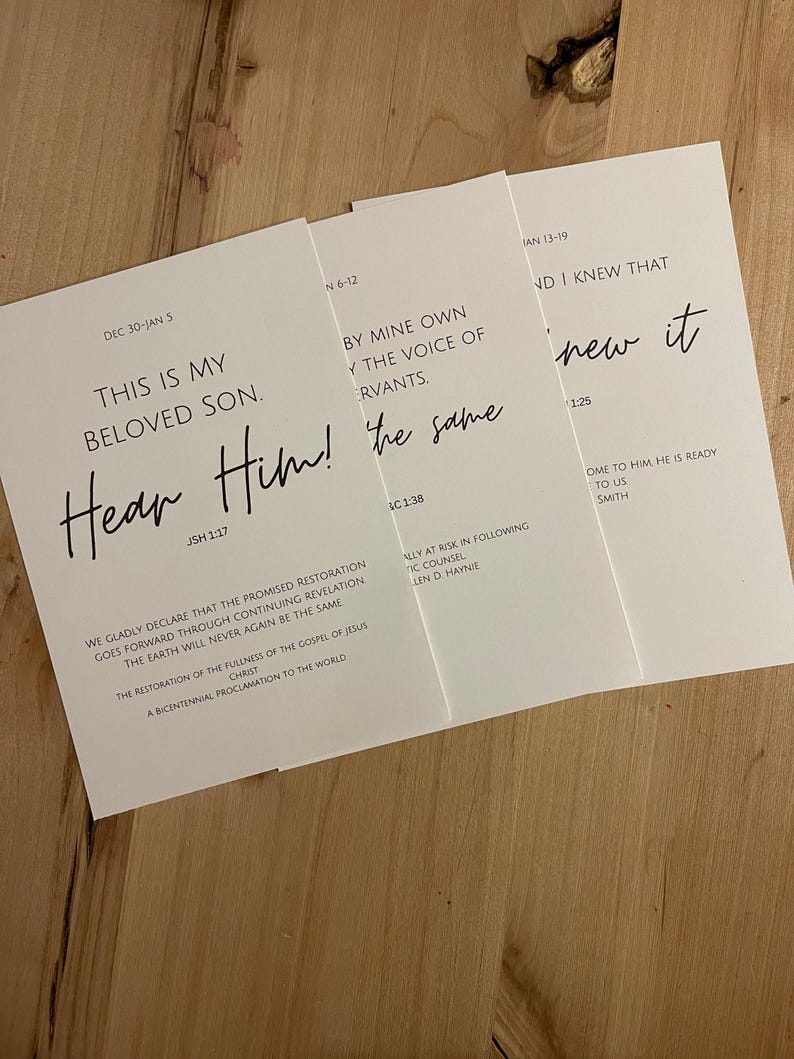 DEC 30-JAN 5
THIS IS MY
BELOVED SON.
Hear Him!
JSH 1:17
WE GLADLY DECLARE THAT THE PROMISED RESTORATION
GOES FORWARD THROUGH CONTINUING REVELATION.
THE EARTH WILL NEVER AGAIN BE THE SAME.
THE RESTORATION OF THE FULLNESS OF THE GOSPEL OF JESUS
CHRIST
A BICENTENNIAL PROCLAMATION TO THE WORLD
N 6-12
BY MINE OWN
Y THE VOICE OF
ERVANTS,
the same
&C 1:38
ALLY AT RISK IN FOLLOWING
TIC COUNSEL
LLEN D. HAYNIE
JAN 13-19
ND I KNEW THAT
knew it
1:25
OME TO HIM. HE IS READY
TO US.
SMITH